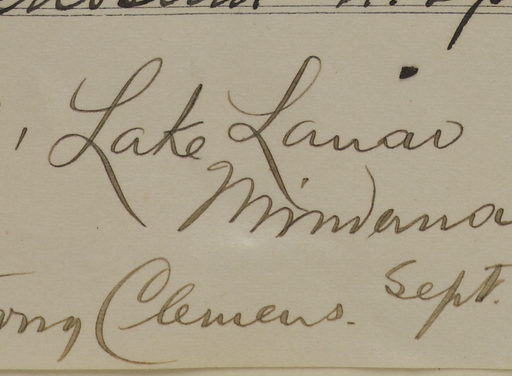 , Lake Lanao
Mindana
ong Clemens. Sept.